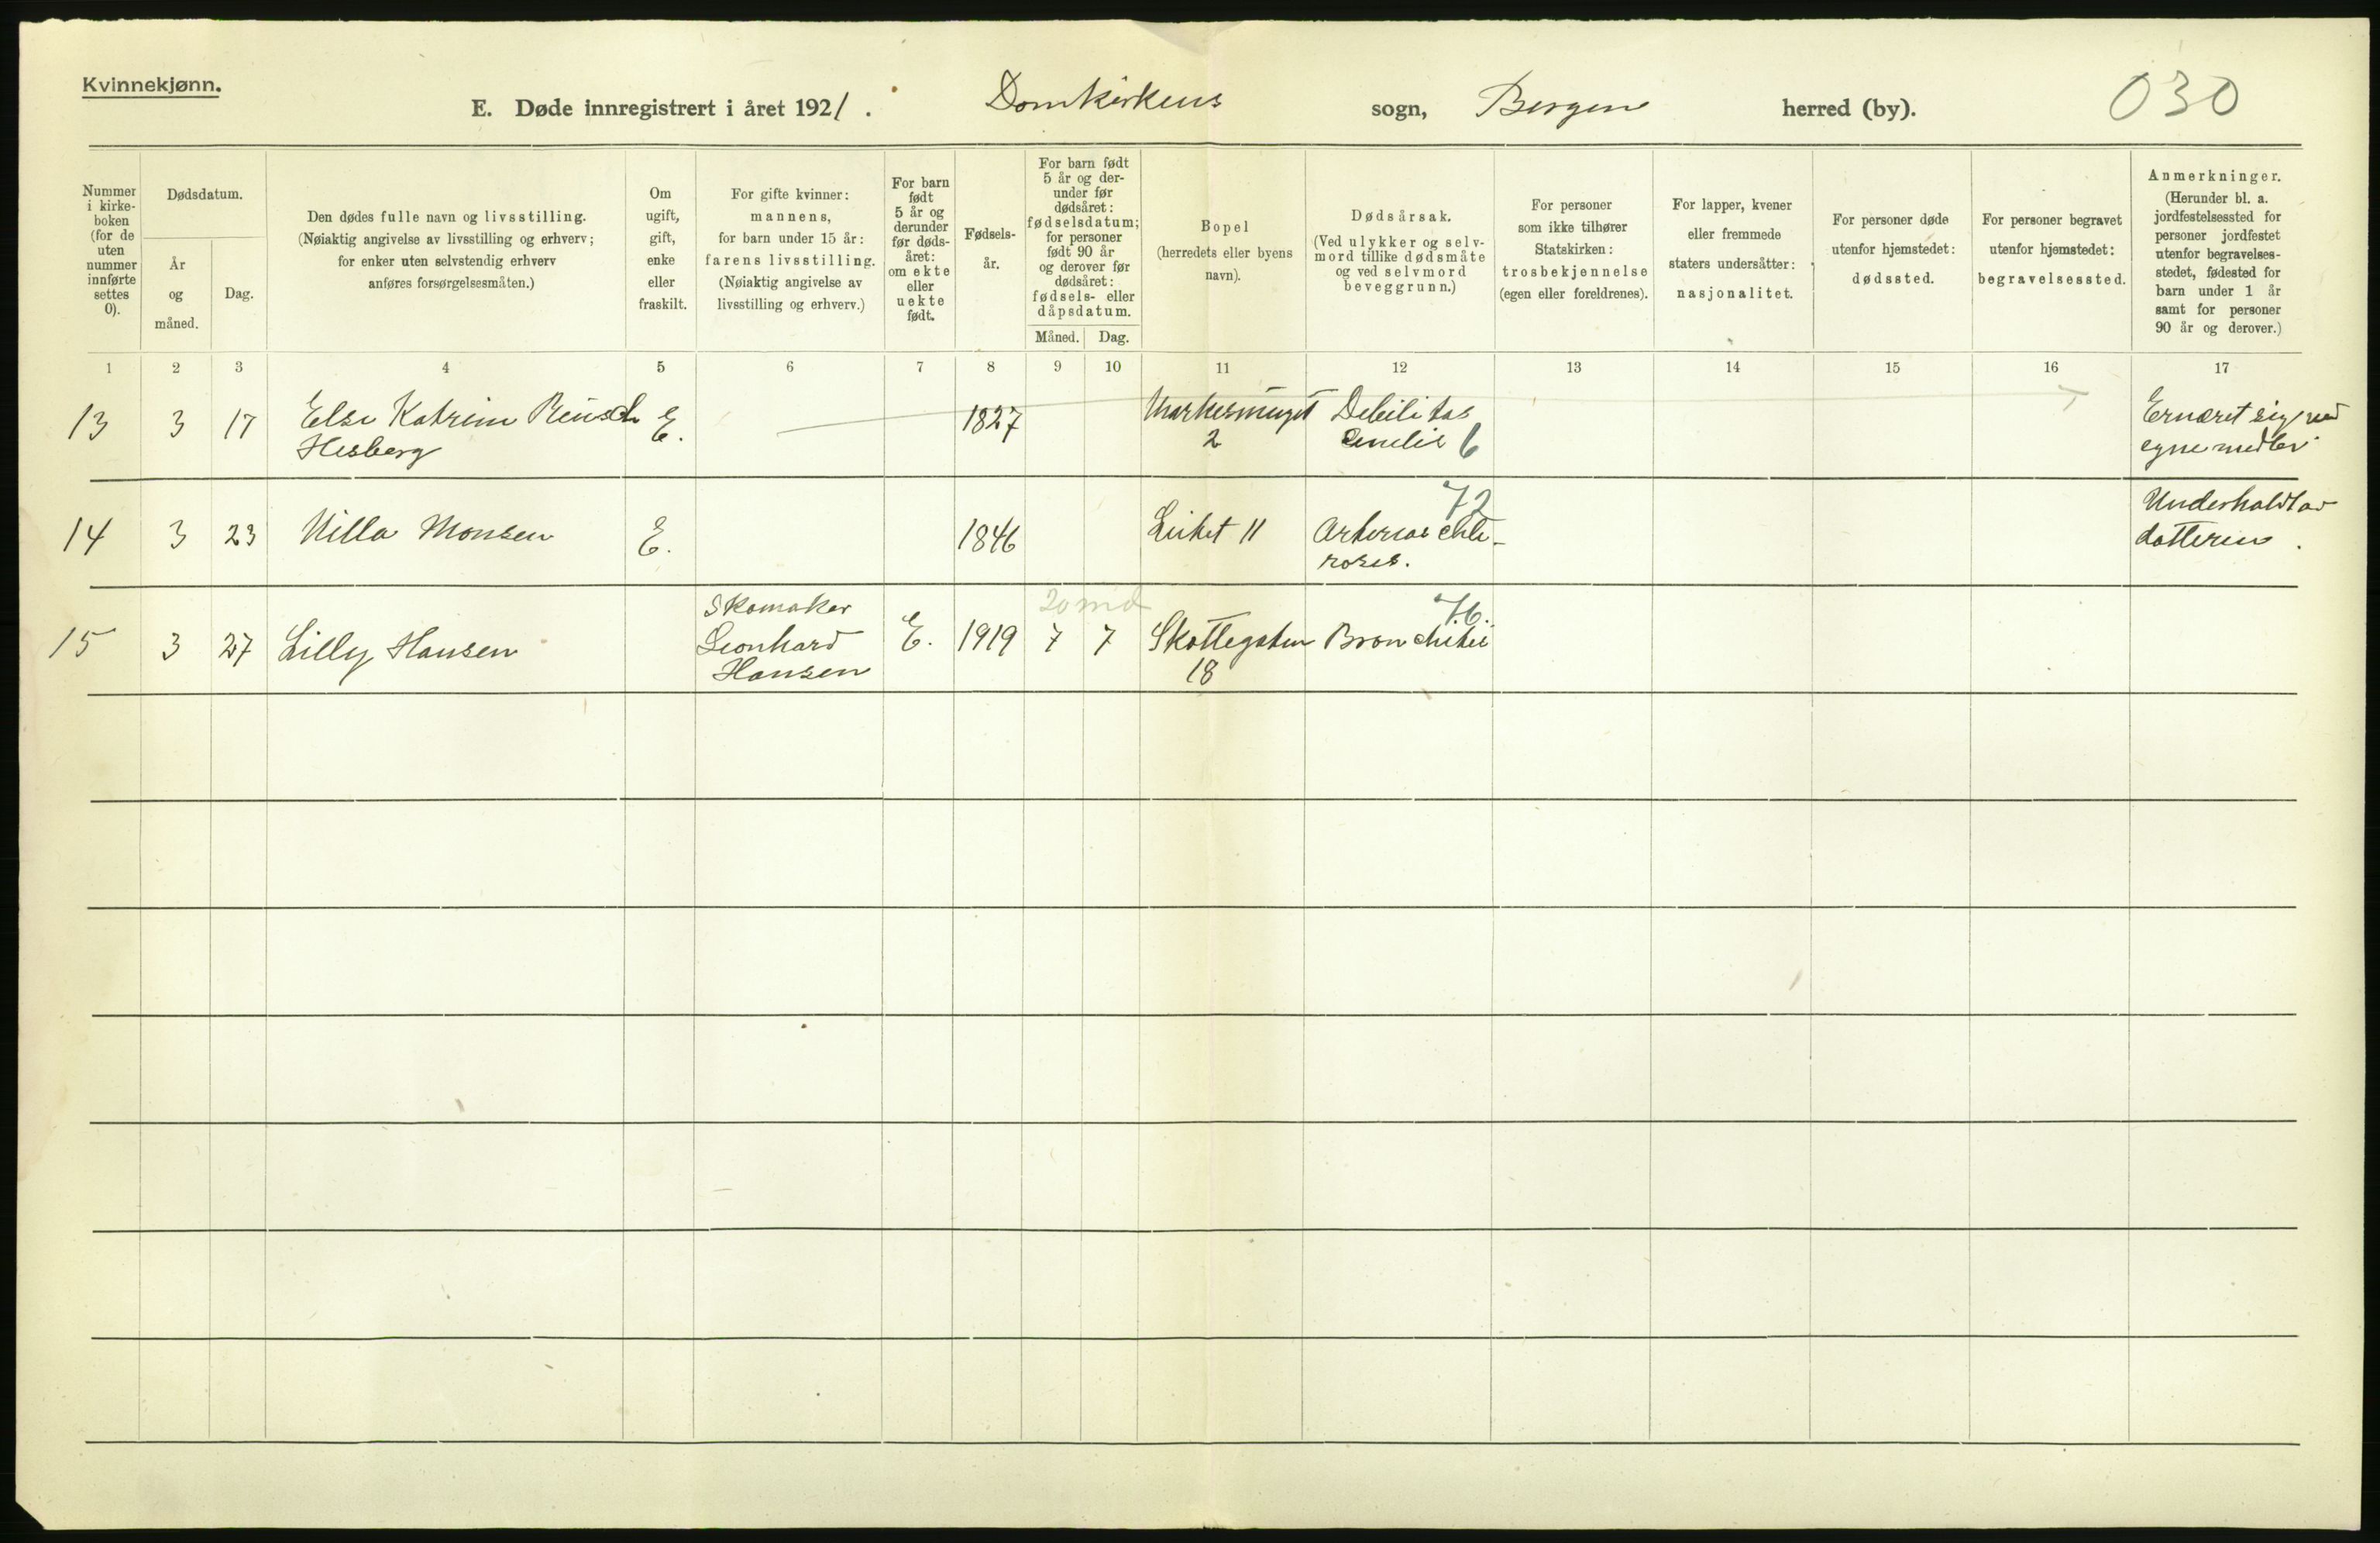 Kvinnekjønn.
E. Døde innregistrert i året 1921. Domkirkens sogn, Bergen herred (by). 030
Nummer i kirke-boken (for de uten nummer innførte settes 0).
Dødsdatum.
År og måned.
Dag.
Den dødes fulle navn og livsstilling.
(Nøiaktig angivelse av livsstilling og erhverv;
for enker uten selvstendig erhverv
anføres forsørgelsesmåten.)
Om
ugift,
gift,
enke
eller
fraskilt.
For gifte kvinner:
mannens,
for barn under 15 år:
farens livsstilling.
(Nøiaktig angivelse av
livsstilling og erhverv.)
For barn
født
5 år og
derunder
før døds-
året:
om ekte
eller
uekte
født.
Fødsels-
år.
For barn født
5 år og der-
under før
dødsåret:
fødselsdatum;
for personer
født 90 år
og derover før
dødsåret:
fødsels- eller
dåpsdatum.
Måned. Dag.
Bopel
(herredets eller byens
navn).
Dødsårsak.
(Ved ulykker og selv-
mord tillike dødsmåte
og ved selvmord
beveggrunn.)
For personer
som ikke tilhører
Statskirken:
trosbekjennelse
(egen eller foreldrenes).
For lapper, kvener
eller fremmede
staters undersåtter:
nasjonalitet.
For personer døde
utenfor hjemstedet:
dødssted.
For personer begravet
utenfor hjemstedet:
begravelsessted.
Anmerkninger.
(Herunder bl. a.
jordfestelsessted for
personer jordfestet
utenfor begravelses-
stedet, fødested for
barn under 1 år
samt for personer
90 år og derover.)
1 2 3 4 5 6 7 8 9 10 11 12 13 14 15 16 17
13 3 17 Else Katrine Reusch E. 1827 Markesmuget Debilitas Ernæret sig ved
Hesberg 2 senilis 6 egne midler
72 Underholdt av
14 3 23 Milla Monsen E. 1846 Lirket 11 Arterioschle- datteren.
rosis.
Skomaker 20 md 76.
15 3 27 Lilly Hansen Leonhard E. 1919 7 7 Skottegaten Bronchitis
Hansen 18